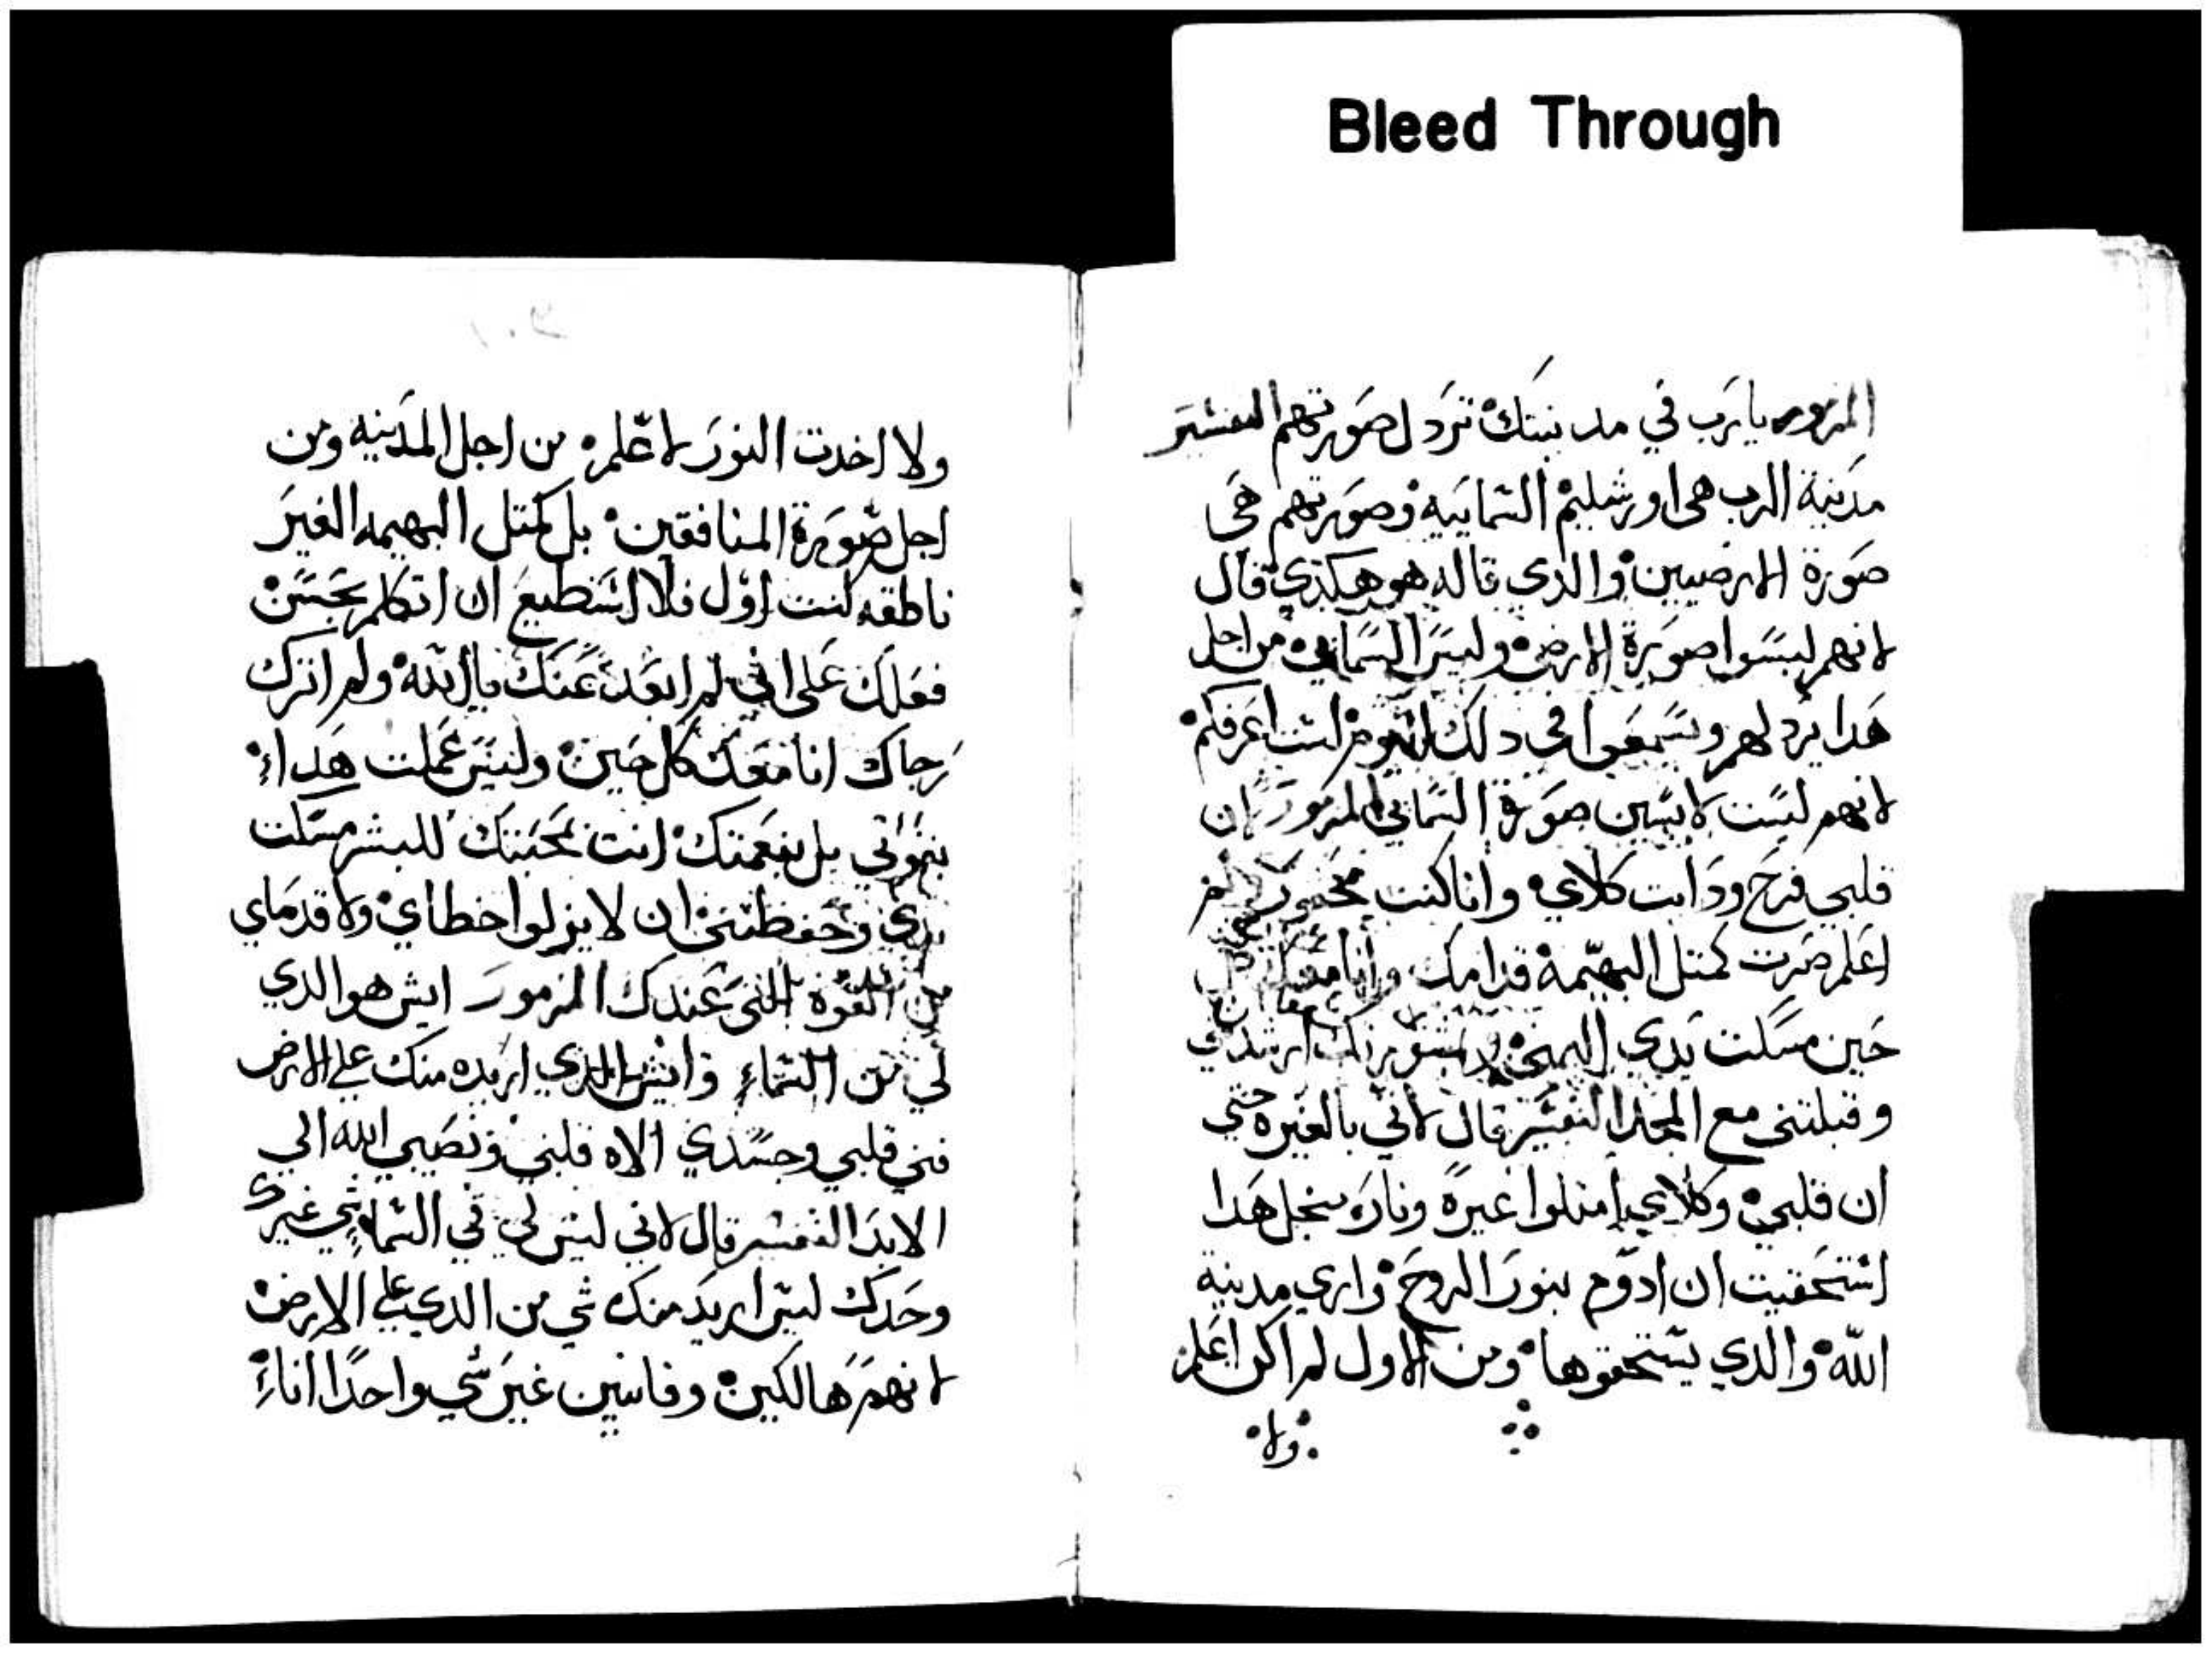 Bleed Through
المزمور يا رب في مدينتك ترذل صورتهم التفسير
مدينة الرب هي اورشليم السماييه وصورتهم هي
صورة الارضيين والذي قاله هو هكذي قال
لانهم لبسوا صورة الارض وليس السماي من اجل
هدا يرد لهم ويسمعوا في دلك اليوم لست اعرفكم
لانهم ليست لابسين صورة السماني المزمور لان
قلبي فرح ودابت كلاي وانا كنت
اعلم صرت كمتل البهيمة قدامك وانا معك كل
حين مسكت يدي اليمني بمشورتك ارشدتني
وقبلتني مع المجد التفسير قال لاني بالغيره حتي
ان قلبي وكلاي امتلوا غيرة ونار من اجل هدا
استحقيت ان ادوم بنور الروح واري مدينة
الله والدي يستحقوها ومن الاول لم اكن اعلم
ولا
ولا اخدت النور لاعلم من اجل المدينه ومن
اجل صورة المنافقين بل كمتل البهيمه الغير
ناطقه كنت اول فلا استطيع ان اتكلم بحسن
فعلك علي اني لم ابعد عنك يا الله ولم اترك
رجاك انا معك كل حين وليس عملت هدا
بقوتي بل بنعمتك انت بمحبتك للبشر مسكت
يدي وحفظتني ان لا يزلوا خطاي ولا قدماي
من القوه التي عندك المزمور ايش هو الدي
لي في السماء وايش الدي اريده منك علي الارض
فني قلبي وجسدي الاه قلبي ونصيبي الله الي
الابد التفسير قال لاني ليس لي في السماء شي غيرك
وحدك ليس اريد منك شي من الدي علي الارض
لانهم هالكين وفانيين غير شي واحدا اناء